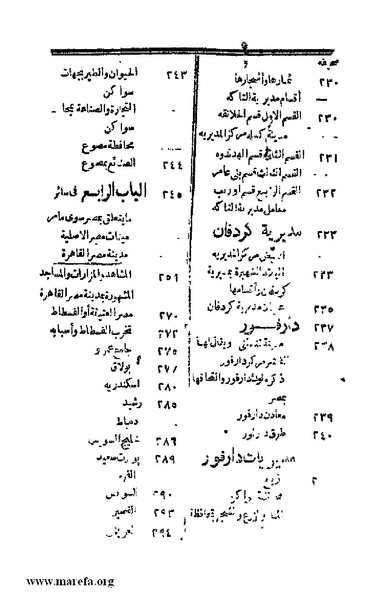 ٩
صحيفه
٢٣٠ ثمارها وأشجارها
— أقسام مديرية التاكه
٢٣٠ القسم الاول قسم الحلانقه
— مدينة كسله مركز المديريه
٢٣١ القسم الثانى قسم الهدندوه
— القسم الثالث قسم بنى عامر
٢٣٢ القسم الرابع قسم
معامل مديرية التاكه
٢٣٣ مديرية كردفان
مركز المديريه
٢٣٣ البلاد الشهيرة بمديرية
كردفان وأقسامها
٢٣٥ مديرية كردفان
٢٣٧ دارفور
٢٣٨ مدينة ويقال لها
مركز دارفور
ذكر دارفور والتحاقها
بمصر
٢٣٩ معادن دارفور
٢٤٠ طرق دارفور
مديريات دارفور
٢٤٣ الحيوان والطير بجهات
سواكن
— التجارة والصناعة بمحا
سواكن
— محافظة مصوع
٢٤٤ الصنائع بمصوع
٢٤٥ الباب الرابع فى سائر
ما يتعلق بمصر سوى ما مر
— مصر الاصلية
— مدينة مصر القاهرة
٢٥١ المشاهد والمزارات والمساجد
المشهورة بمدينة مصر القاهرة
٢٧٠ مصر العتيقة أو الفسطاط
٢٧٢ تخرب الفسطاط وأسبابه
٢٧٥ جامع عمرو
٢٧٧ بولاق
٢٨٠ اسكندريه
٢٨٥ رشيد
— دمياط
٢٨٦ خليج السويس
٢٨٩ بورت سعيد
٢٩٠ السويس
٢٩٣ القصير
٢٩٤ العريش
www.marefa.org